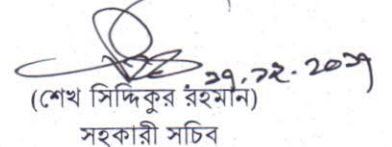 ২৭.১২.২০১৭
(শেখ সিদ্দিকুর রহমান)
সহকারী সচিব